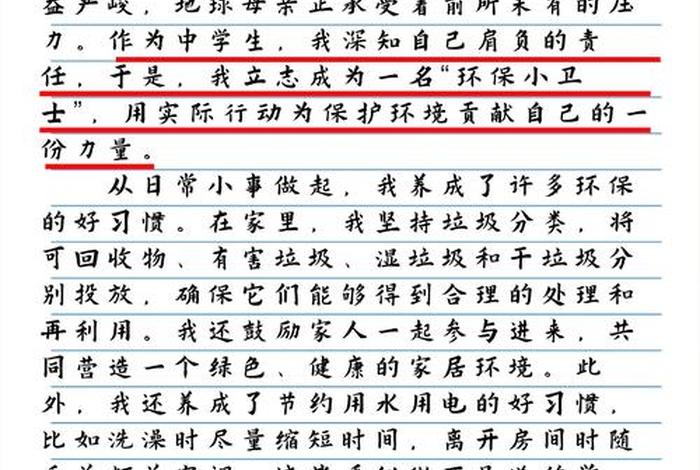 益严峻，地球母亲正承受着前所未有的压
力。作为中学生，我深知自己肩负的责
任，于是，我立志成为一名“环保小卫
士”，用实际行动为保护环境贡献自己的一
份力量。
从日常小事做起，我养成了许多环保
的好习惯。在家里，我坚持垃圾分类，将
可回收物、有害垃圾、湿垃圾和干垃圾分
别投放，确保它们能够得到合理的处理和
再利用。我还鼓励家人一起参与进来，共
同营造一个绿色、健康的家居环境。此
外，我还养成了节约用水用电的好习惯，
比如洗澡时尽量缩短时间，离开房间时随